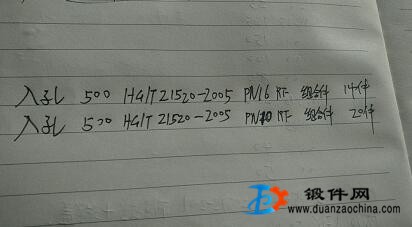 入孔 500 HG/T21520-2005 PN16 RF 组合件 14件
入孔 500 HG/T21520-2005 PN10 RF 组合件 20件
锻件网
www.duanzaochina.com